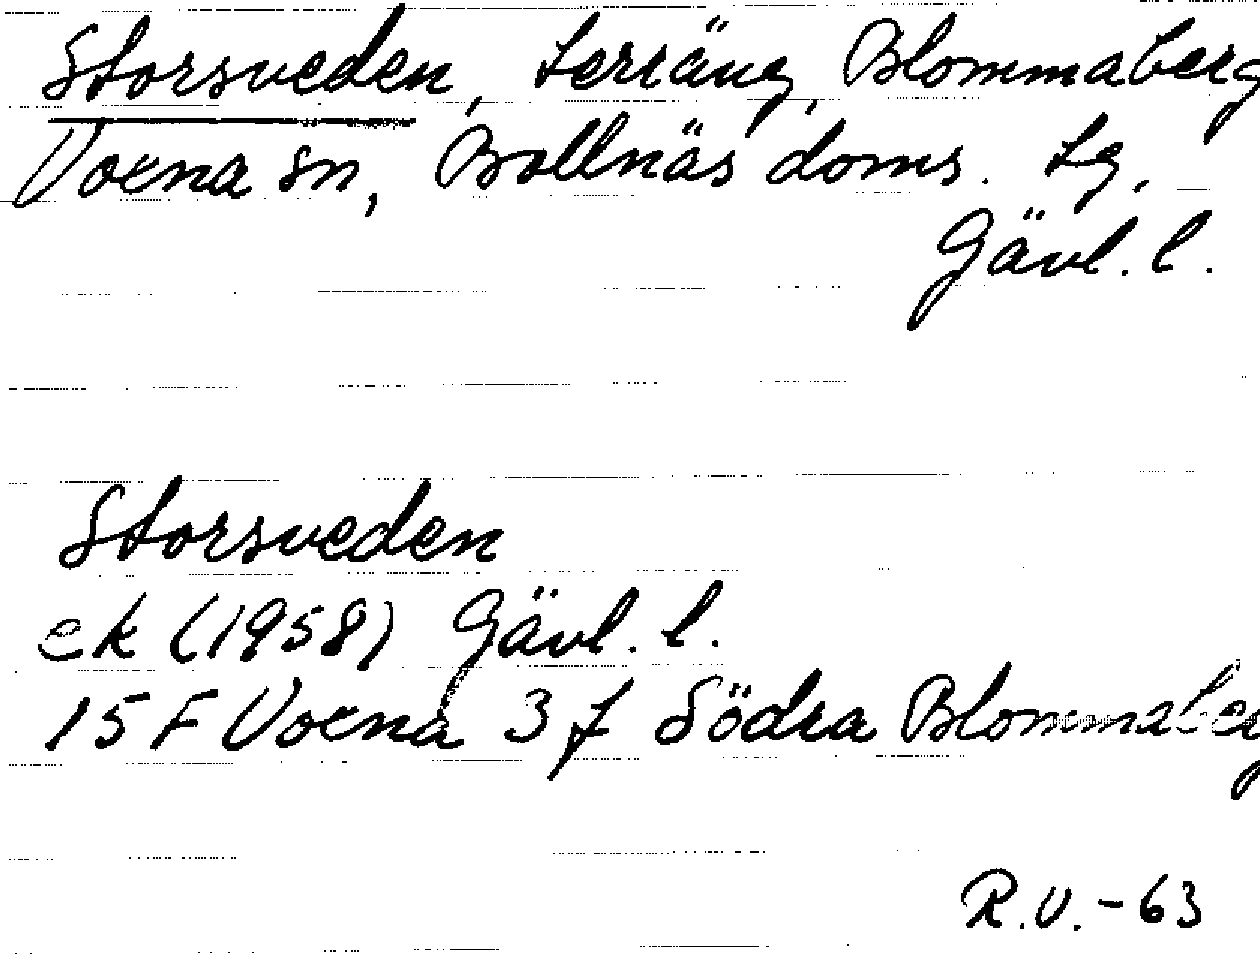 Storsveden, terräng, Blommaberg
Voxna sn, Bollnäs doms. tg,
Gävl. l.
Storsveden
ek (1958) Gävl. l.
15 F Voxna 3 f Södra Blommaberg
R.V.-63